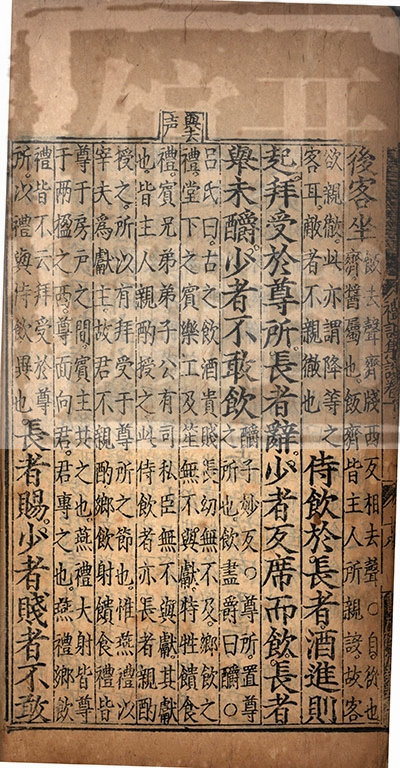 與去
声
後客坐
飯去聲齊牋西反相去聲○自從也
齊醬屬也飯齊皆主人所親設故客
欲親徹此亦謂降等之
客耳敵者不親徹也
侍飲於長者酒進則
起拜受於尊所長者辭少者反席而飲長者
舉未釂少者不敢飲
釂子妙反○尊所置尊
之所也飲盡爵曰釂○
呂氏曰古之飲酒貴賤長幼無不及鄉飲之
禮堂下之賓樂工及笙無不與獻特牲饋食
禮賓兄弟弟子公有司私臣無不與獻其獻
也皆主人親酌授之此侍飲者亦長者親酌
授之所以有拜受于尊所之節也惟燕禮以
宰夫爲獻主故君不親酌鄉飲射饋食禮皆
尊于房戶之間賓主共之也燕禮大射皆尊
于兩楹之西尊面向君君專之也燕禮鄉飲
禮皆不云拜受於尊
所以禮與侍飲異也
長者賜少者賤者不敢